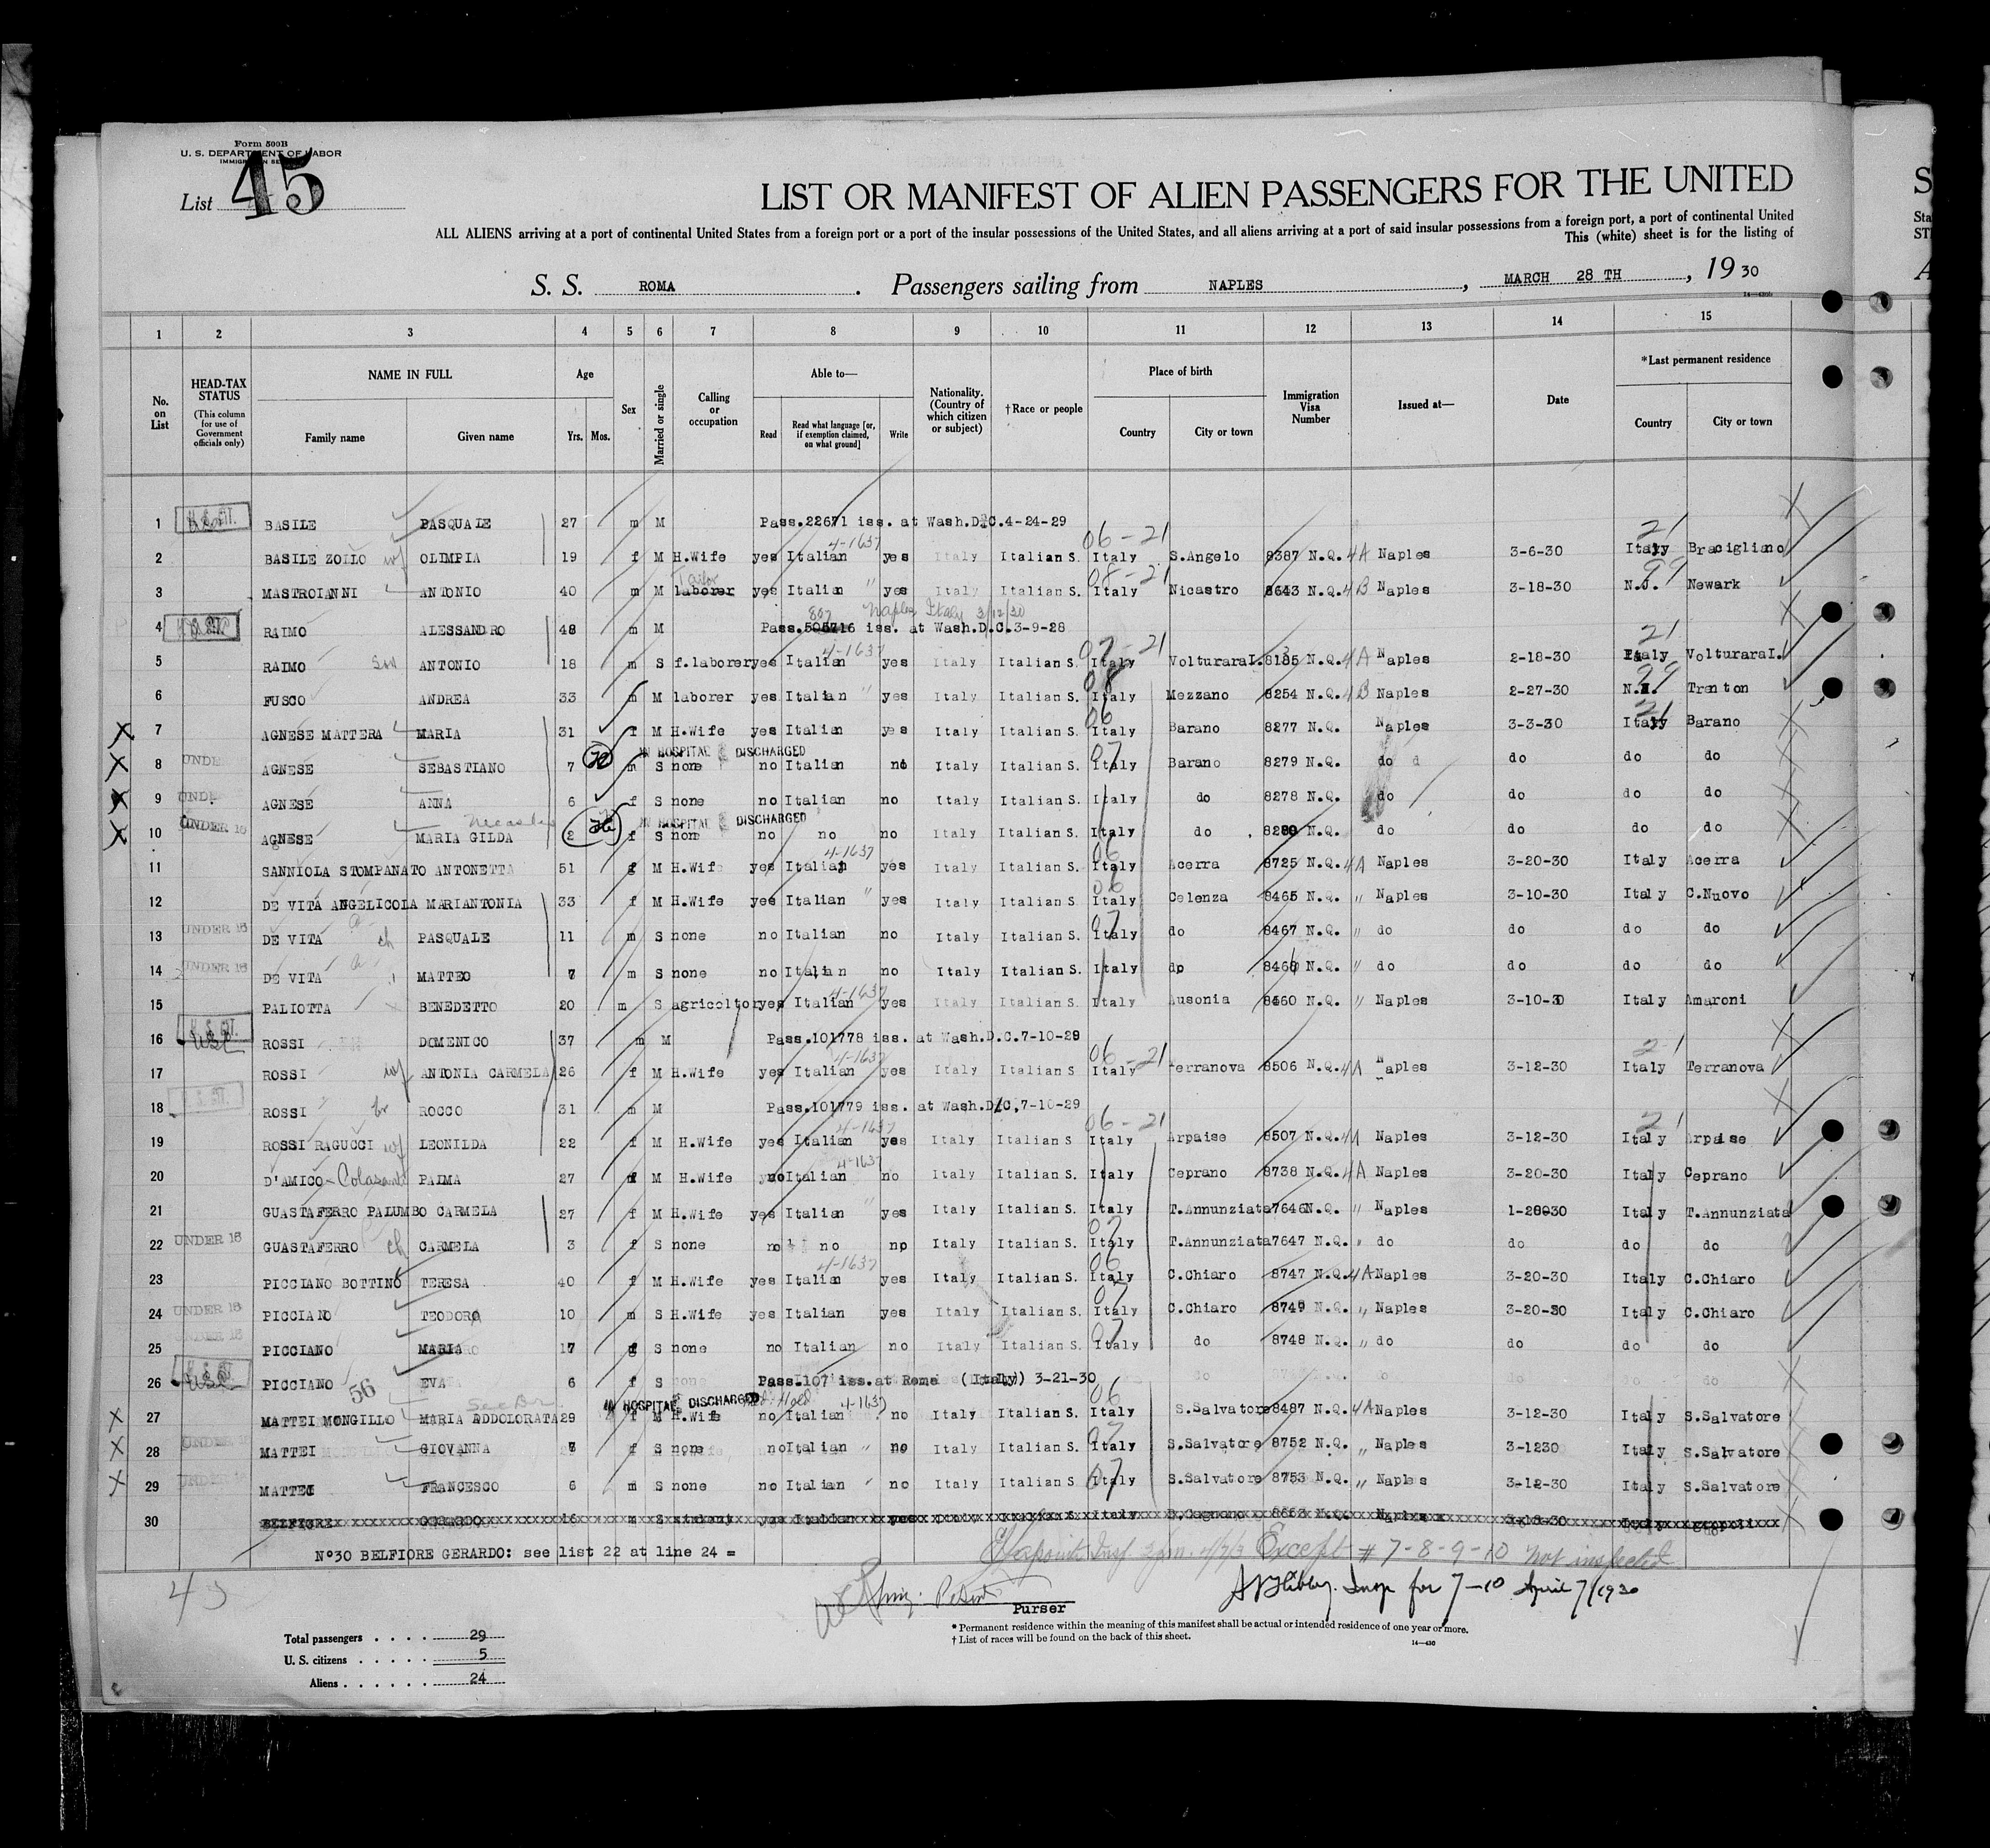 Form 500B
U. S. DEPARTMENT OF LABOR
List 45
LIST OR MANIFEST OF ALIEN PASSENGERS FOR THE UNITED
ALL ALIENS arriving at a port of continental United States from a foreign port or a port of the insular possessions of the United States, and all aliens arriving at a port of said insular possessions from a foreign port, a port of continental United
This (white) sheet is for the listing of
S. S. ROMA . Passengers sailing from NAPLES , MARCH 28 TH , 19 30
1 2 3 4 5 6 7 8 9 10 11 12 13 14 15
No. on List
HEAD-TAX STATUS (This column for use of Government officials only)
NAME IN FULL Family name Given name
Age Yrs. Mos.
Sex
Married or single
Calling or occupation
Able to— Read Read what language [or, if exemption claimed, on what ground] Write
Nationality. (Country of which citizen or subject)
†Race or people
Place of birth Country City or town
Immigration Visa Number
Issued at—
Date
*Last permanent residence Country City or town
1 BASILE PASQUALE 27 m M Pass.22671 iss. at Wash.D.C.4-24-29
06-21 21
4-1637
2 BASILE ZOLLO wf OLIMPIA 19 f M H.Wife yes Italian yes Italy Italian S. Italy S.Angelo 8387 N.Q. 4A Naples 3-6-30 Italy Bracigliano
Tailor 08-21 99
3 MASTROIANNI ANTONIO 40 m M laborer yes Italian " yes Italy Italian S. Italy Nicastro 8643 N.Q. 4B Naples 3-18-30 N.J. Newark
807 Naples Italy 3/12/30
4 RAIMO ALESSANDRO 48 m M Pass. iss. at Wash.D.C.3-9-28
4-1637 07-21 21
5 RAIMO Son ANTONIO 18 m S f.laborer yes Italian yes Italy Italian S. Italy VolturaraI. 8185 N.Q. 4A Naples 2-18-30 Italy VolturaraI.
08 99
6 FUSCO ANDREA 33 m M laborer yes Italian " yes Italy Italian S. Italy Mezzano 8254 N.Q. 4B Naples 2-27-30 N. Trenton
06 21
X 7 AGNESE MATTERA MARIA 31 f M H.Wife yes Italian yes Italy Italian S. Italy Barano 8277 N.Q. Naples 3-3-30 Italy Barano
IN HOSPITAL DISCHARGED 07
X 8 UNDE AGNESE SEBASTIANO 7 m S none no Italian no Italy Italian S. Italy Barano 8279 N.Q. do do do do
X 9 UNDE AGNESE ANNA 6 f S none no Italian no Italy Italian S. Italy do 8278 N.Q. do do do do
IN HOSPITAL DISCHARGED
X 10 UNDER 16 AGNESE MARIA GILDA 2 f S non no no no Italy Italian S. Italy do N.Q. do do do do
4-1637 06
11 SANNIOLA STOMPANATO ANTONETTA 51 f M H.Wife yes Italian yes Italy Italian S. Italy Acerra 8725 N.Q. 4A Naples 3-20-30 Italy Acerra
06
12 DE VITA ANGELICOLA MARIANTONIA 33 f M H.Wife yes Italian " yes Italy Italian S. Italy Celenza 8465 N.Q. " Naples 3-10-30 Italy C.Nuovo
07
13 UNDER 16 DE VITA ch PASQUALE 11 m S none no Italian no Italy Italian S. Italy do 8467 N.Q. " do do do do
14 UNDER 16 DE VITA MATTEO 7 m S none no Italian no Italy Italian S. Italy do N.Q. " do do do do
4-1637
15 PALIOTTA BENEDETTO 20 m S agricoltor yes Italian yes Italy Italian S. Italy Ausonia 8460 N.Q. " Naples 3-10-30 Italy Amaroni
16 USC ROSSI DOMENICO 37 m M Pass.101778 iss. at Wash.D.C.7-10-29
4-1637 06-21 21
17 ROSSI wf ANTONIA CARMELA 26 f M H.Wife yes Italian yes Italy Italian S Italy Terranova 8506 N.Q. 4A Naples 3-12-30 Italy Terranova
18 ROSSI br ROCCO 31 m M Pass.101779 iss. at Wash.D.C,7-10-29
4-1637 06-21 21
19 ROSSI RAGUCCI wf LEONILDA 22 f M H.Wife yes Italian yes Italy Italian S. Italy Arpaise 8507 N.Q. 4A Naples 3-12-30 Italy Arpaise
4-1637
20 D'AMICO - Colasanti PALMA 27 f M H.Wife no Italian no Italy Italian S. Italy Ceprano 8738 N.Q. 4A Naples 3-20-30 Italy Ceprano
21 GUASTAFERRO PALUMBO CARMELA 27 f M H.Wife yes Italian " yes Italy Italian S. Italy T.Annunziata 7646 N.Q. " Naples 1-2830 Italy T.Annunziata
07
22 UNDER 16 GUASTAFERRO ch CARMELA 3 f S none no no no Italy Italian S. Italy T.Annunziata 7647 N.Q. " do do do do
4-1637 06
23 PICCIANO BOTTINO TERESA 40 f M H.Wife yes Italian yes Italy Italian S. Italy C.Chiaro 8747 N.Q. 4A Naples 3-20-30 Italy C.Chiaro
07
24 UNDER 16 PICCIANO TEODORO 10 m S H.Wife yes Italian yes Italy Italian S. Italy C.Chiaro 8749 N.Q. " Naples 3-20-30 Italy C.Chiaro
07
25 UNDER 16 PICCIANO MARIA 17 f S none no Italian no Italy Italian S. Italy do 8748 N.Q. " do do do do
26 USC PICCIANO EVA 6 f S Pass.107 iss.at Rome (Italy) 3-21-30
56 IN HOSPITAL DISCHARGED Hold 4-1637 06
X 27 MATTEI MONGILLO MARIA ADDOLORATA 29 f M H.Wife no Italian no Italy Italian S. Italy S.Salvatore 8487 N.Q. 4A Naples 3-12-30 Italy S.Salvatore
07
X 28 UNDER 1 MATTEI GIOVANNA 7 f S none no Italian " no Italy Italian S. Italy S.Salvatore 8752 N.Q. " Naples 3-1230 Italy S.Salvatore
07
X 29 UNDER 1 MATTEI FRANCESCO 6 m S none no Italian " no Italy Italian S Italy S.Salvatore 8753 N.Q. " Naples 3-12-30 Italy S.Salvatore
30 BELFIORE GERARDO 16 m S student yes Italian yes Italy Italian S. Italy N.Q. Naples 3-18-30 Italy
N°30 BELFIORE GERARDO: see list 22 at line 24 =
Except # 7-8-9-10 not inspected
Insp for 7-10 April 7/1930
Purser
45
* Permanent residence within the meaning of this manifest shall be actual or intended residence of one year or more.
† List of races will be found on the back of this sheet.
Total passengers . . . . 29
U. S. citizens . . . . . 5
Aliens . . . . . . 24